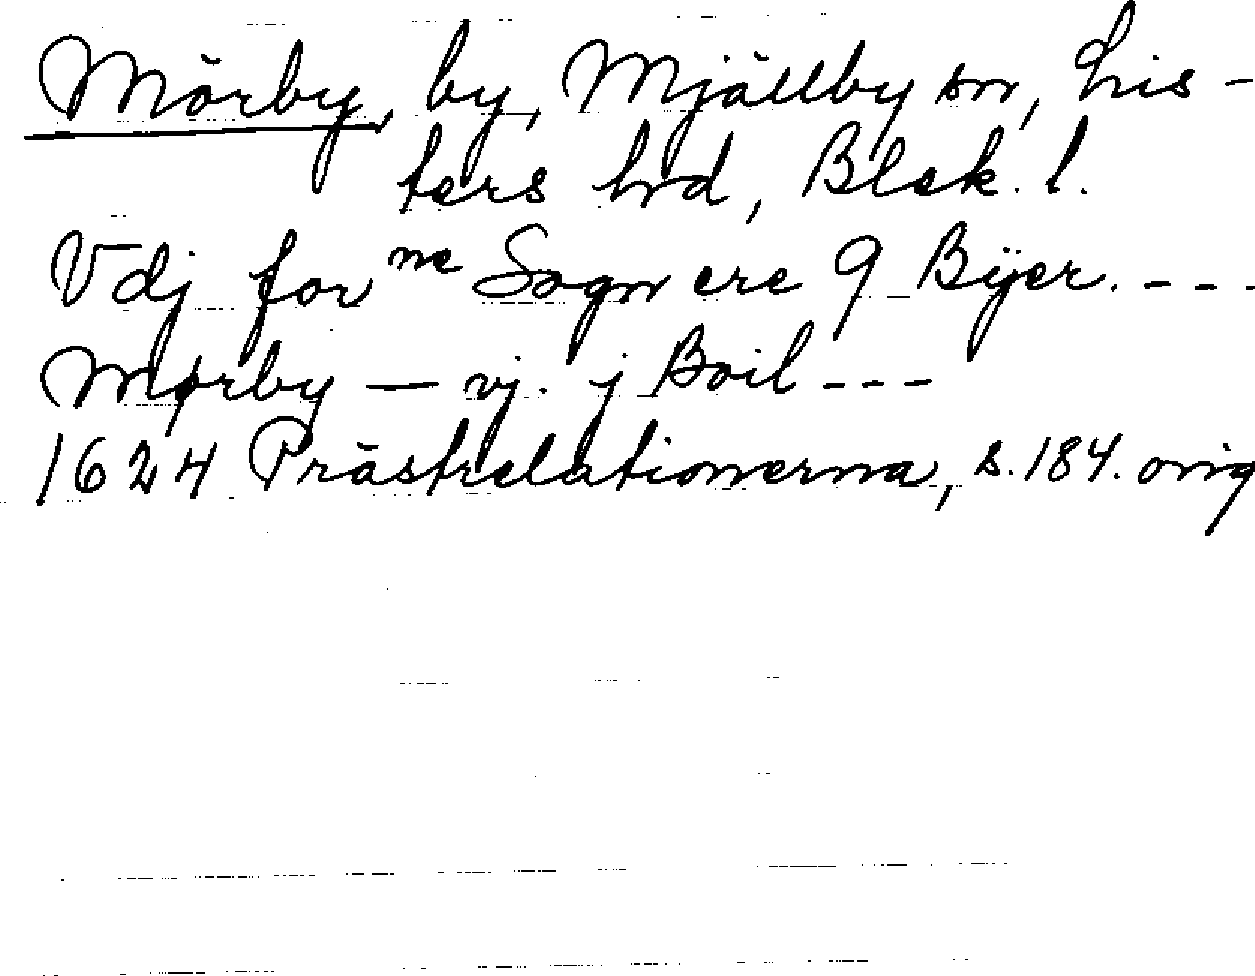 Mörby, by, Mjällby sn, Lis-
ters hrd, Blek. l.
Vdj for ne Sogn ere 9 Byer. ---
Mørby — vj. j Boil ---
1624 Prästrelationerna, s. 184. orig